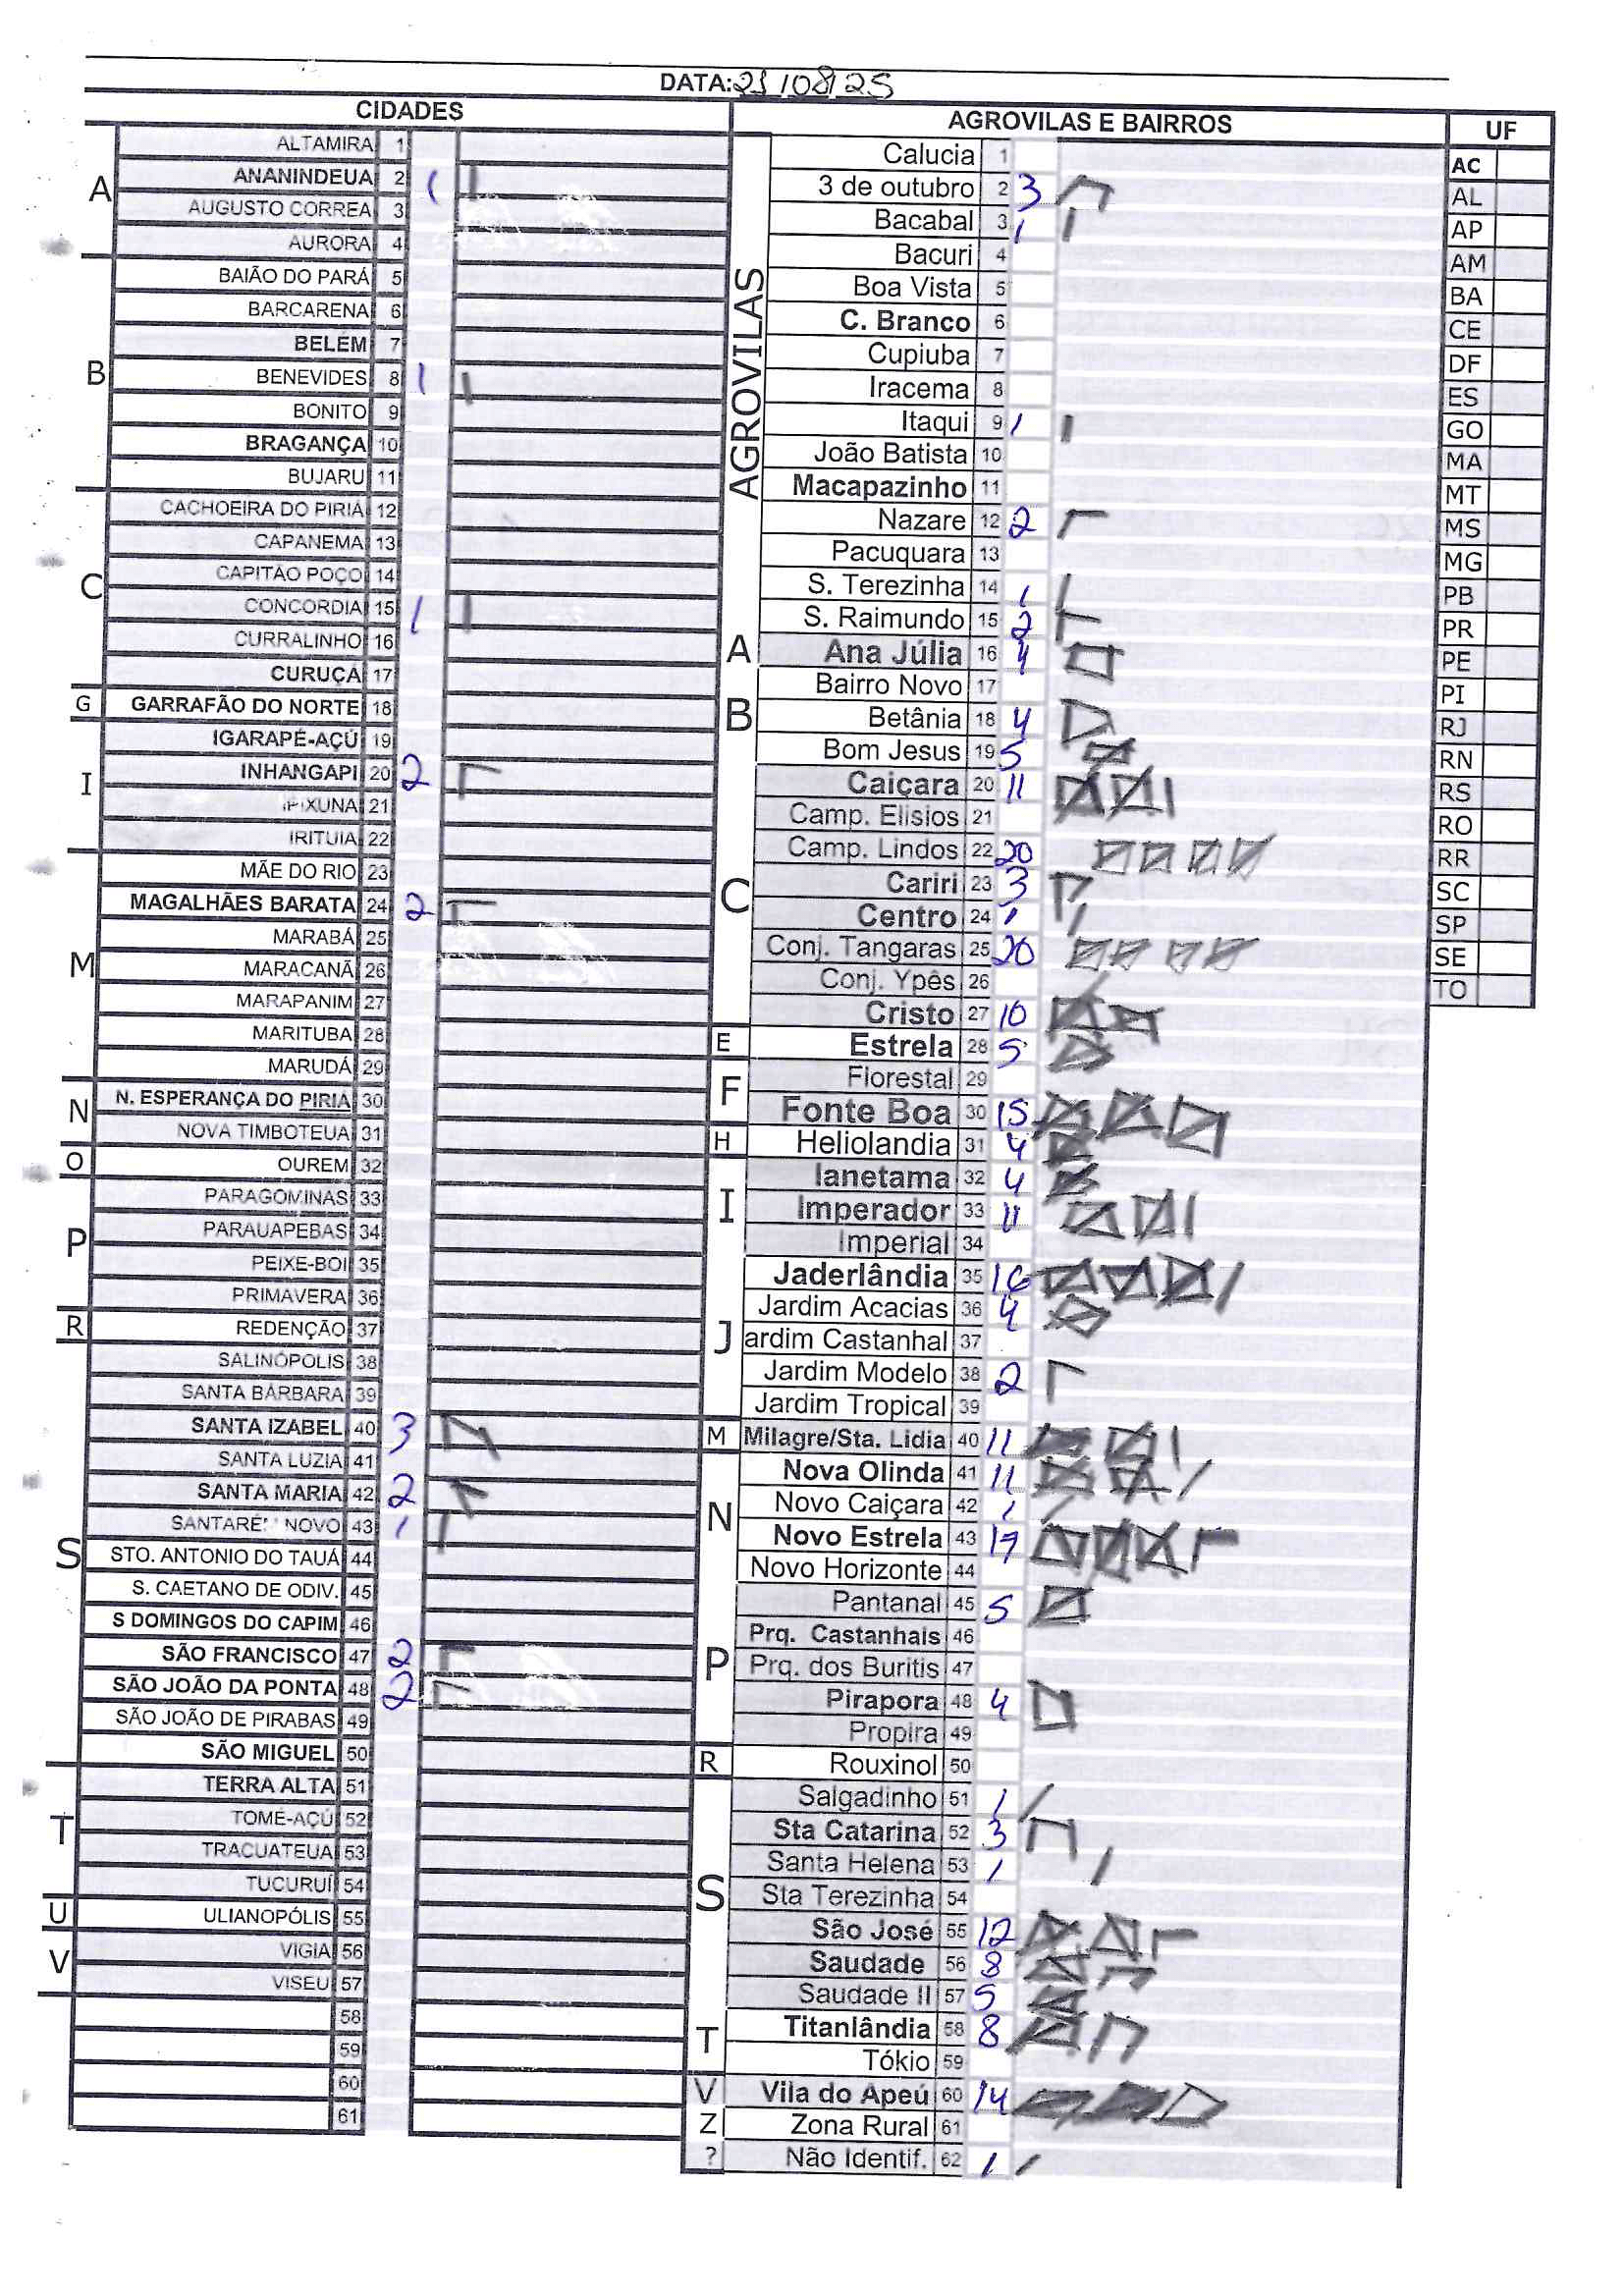 DATA: 21/08/25
CIDADES
A
ALTAMIRA 1
ANANINDEUA 2 1
AUGUSTO CORREA 3
AURORA 4
B
BAIÃO DO PARÁ 5
BARCARENA 6
BELÉM 7
BENEVIDES 8 1
BONITO 9
BRAGANÇA 10
BUJARU 11
C
CACHOEIRA DO PIRIÁ 12
CAPANEMA 13
CAPITÃO POÇO 14
CONCORDIA 15 1
CURRALINHO 16
CURUÇÁ 17
G
GARRAFÃO DO NORTE 18
I
IGARAPÉ-AÇÚ 19
INHANGAPI 20 2
IPIXUNA 21
IRITUIA 22
M
MÃE DO RIO 23
MAGALHÃES BARATA 24 2
MARABÁ 25
MARACANÃ 26
MARAPANIM 27
MARITUBA 28
MARUDÁ 29
N
N. ESPERANÇA DO PIRIÁ 30
NOVA TIMBOTEUA 31
O
OUREM 32
P
PARAGOMINAS 33
PARAUAPEBAS 34
PEIXE-BOI 35
PRIMAVERA 36
R
REDENÇÃO 37
S
SALINÓPOLIS 38
SANTA BÁRBARA 39
SANTA IZABEL 40 3
SANTA LUZIA 41
SANTA MARIA 42 2
SANTARÉM NOVO 43 1
STO. ANTONIO DO TAUÁ 44
S. CAETANO DE ODIV. 45
S DOMINGOS DO CAPIM 46
SÃO FRANCISCO 47 2
SÃO JOÃO DA PONTA 48 2
SÃO JOÃO DE PIRABAS 49
SÃO MIGUEL 50
T
TERRA ALTA 51
TOMÉ-AÇÚ 52
TRACUATEUA 53
TUCURUÍ 54
U
ULIANOPÓLIS 55
V
VIGIA 56
VISEU 57
58
59
60
61
AGROVILAS E BAIRROS
AGROVILAS
Calucia 1
3 de outubro 2 3
Bacabal 3 1
Bacuri 4
Boa Vista 5
C. Branco 6
Cupiuba 7
Iracema 8
Itaqui 9 1
João Batista 10
Macapazinho 11
Nazare 12 2
Pacuquara 13
S. Terezinha 14 1
S. Raimundo 15 2
A
Ana Júlia 16 4
B
Bairro Novo 17
Betânia 18 4
Bom Jesus 19 5
C
Caiçara 20 11
Camp. Elisios 21
Camp. Lindos 22 20
Cariri 23 3
Centro 24 1
Conj. Tangaras 25 20
Conj. Ypês 26
Cristo 27 10
E
Estrela 28 5
F
Florestal 29
Fonte Boa 30 15
H
Heliolandia 31 4
I
Ianetama 32 4
Imperador 33 11
Imperial 34
J
Jaderlândia 35 16
Jardim Acacias 36 4
ardim Castanhal 37
Jardim Modelo 38 2
Jardim Tropical 39
M
Milagre/Sta. Lidia 40 11
N
Nova Olinda 41 11
Novo Caiçara 42 1
Novo Estrela 43 17
Novo Horizonte 44
P
Pantanal 45 5
Prq. Castanhais 46
Prq. dos Buritis 47
Pirapora 48 4
Propira 49
R
Rouxinol 50
S
Salgadinho 51 1
Sta Catarina 52 3
Santa Helena 53 1
Sta Terezinha 54
São José 55 12
Saudade 56 8
Saudade II 57 5
T
Titanlândia 58 8
Tókio 59
V
Vila do Apeú 60 14
Z
Zona Rural 61
?
Não Identif. 62 1
UF
AC
AL
AP
AM
BA
CE
DF
ES
GO
MA
MT
MS
MG
PB
PR
PE
PI
RJ
RN
RS
RO
RR
SC
SP
SE
TO